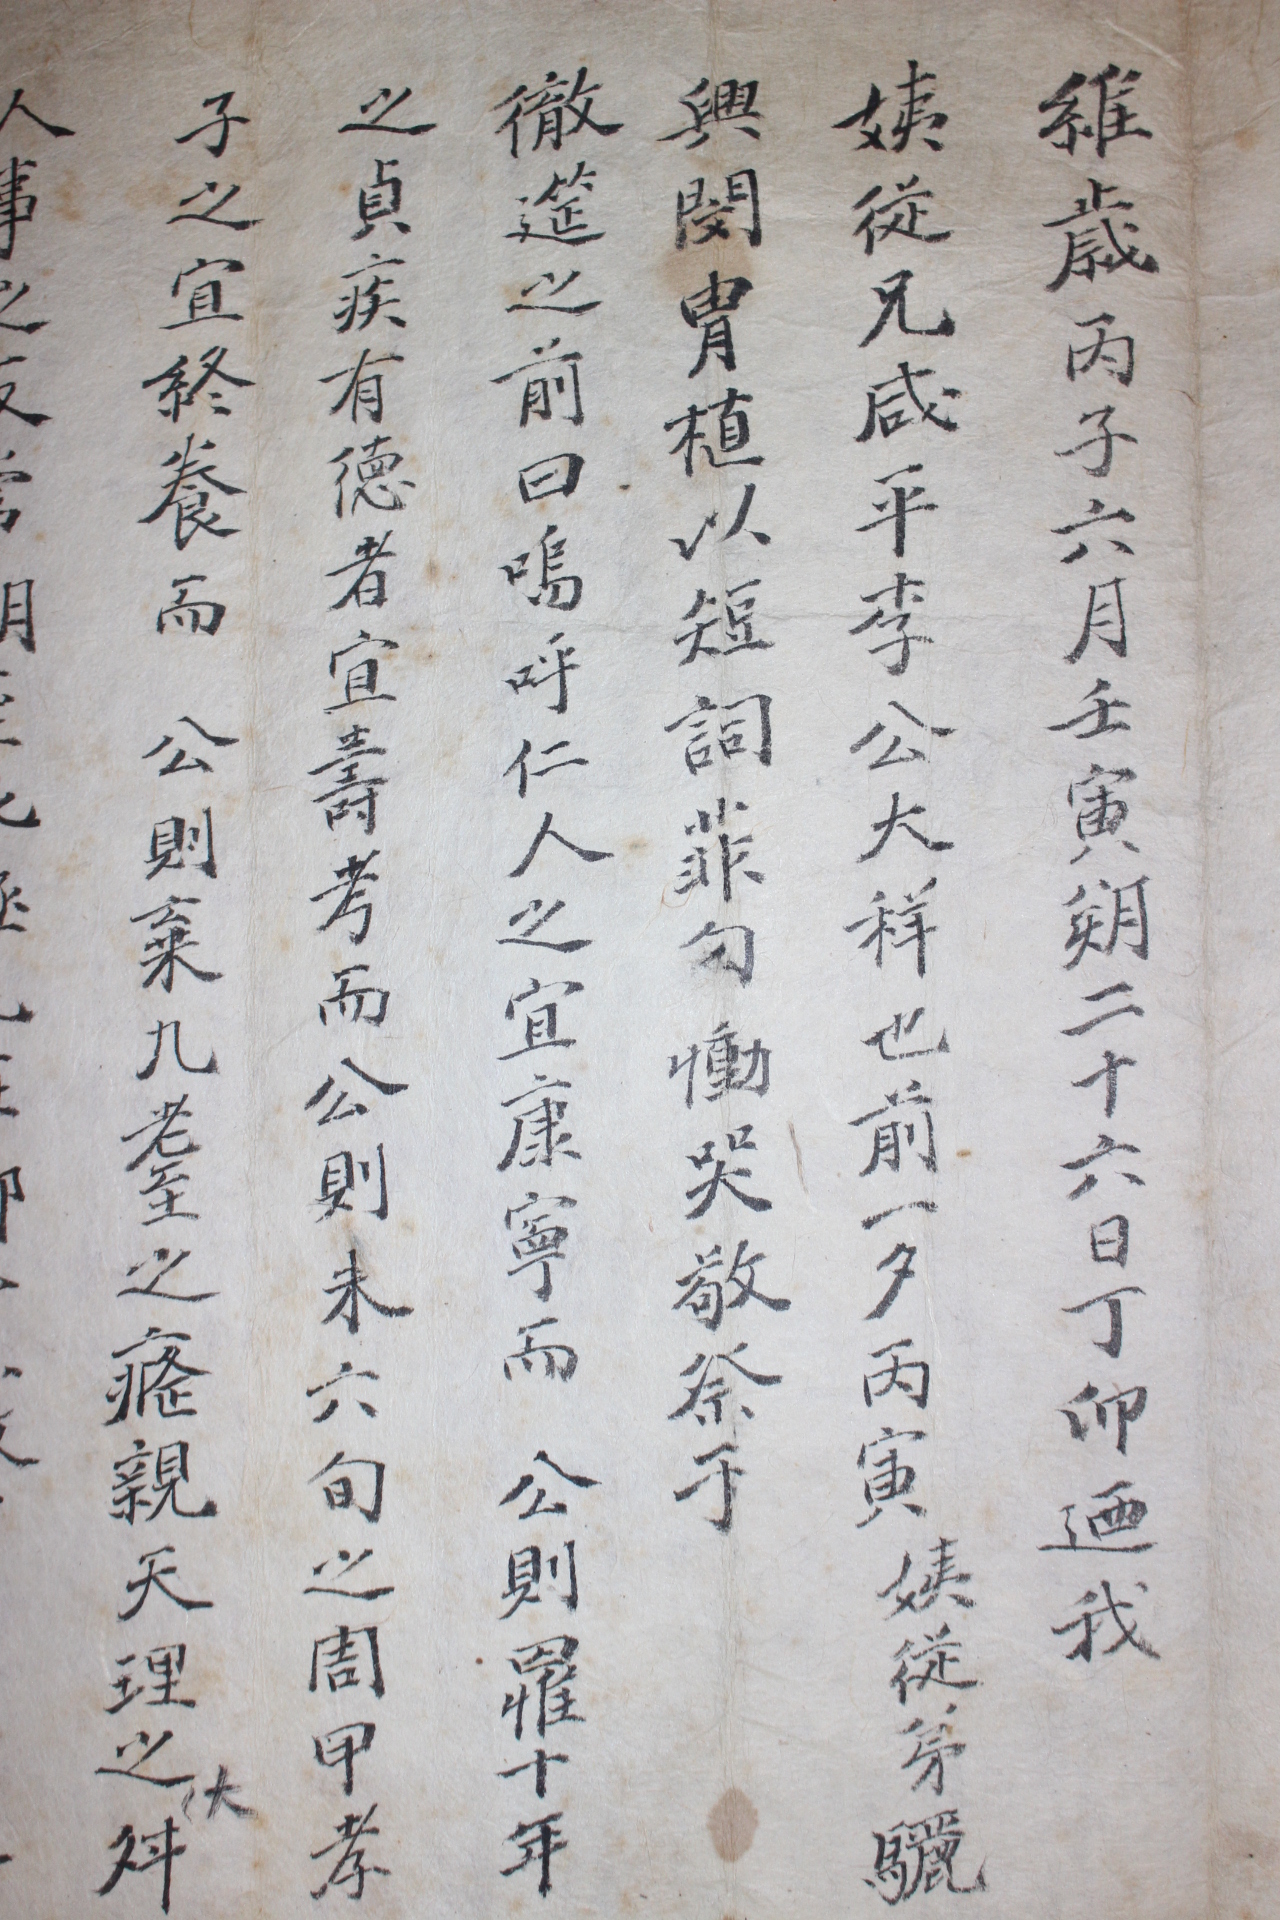 維歲丙子六月壬寅朔二十六日丁卯迺我
姨從兄咸平李公大祥也前一夕丙寅姨從弟驪
興閔胄植以短詞菲句慟哭敬祭于
徹筵之前曰嗚呼仁人之宜康寧而 公則罹十年
之貞疾有德者宜壽考而公則未六旬之周甲孝
子之宜終養而 公則棄九耋之癃親天理之舛
人事之反常胡至此極